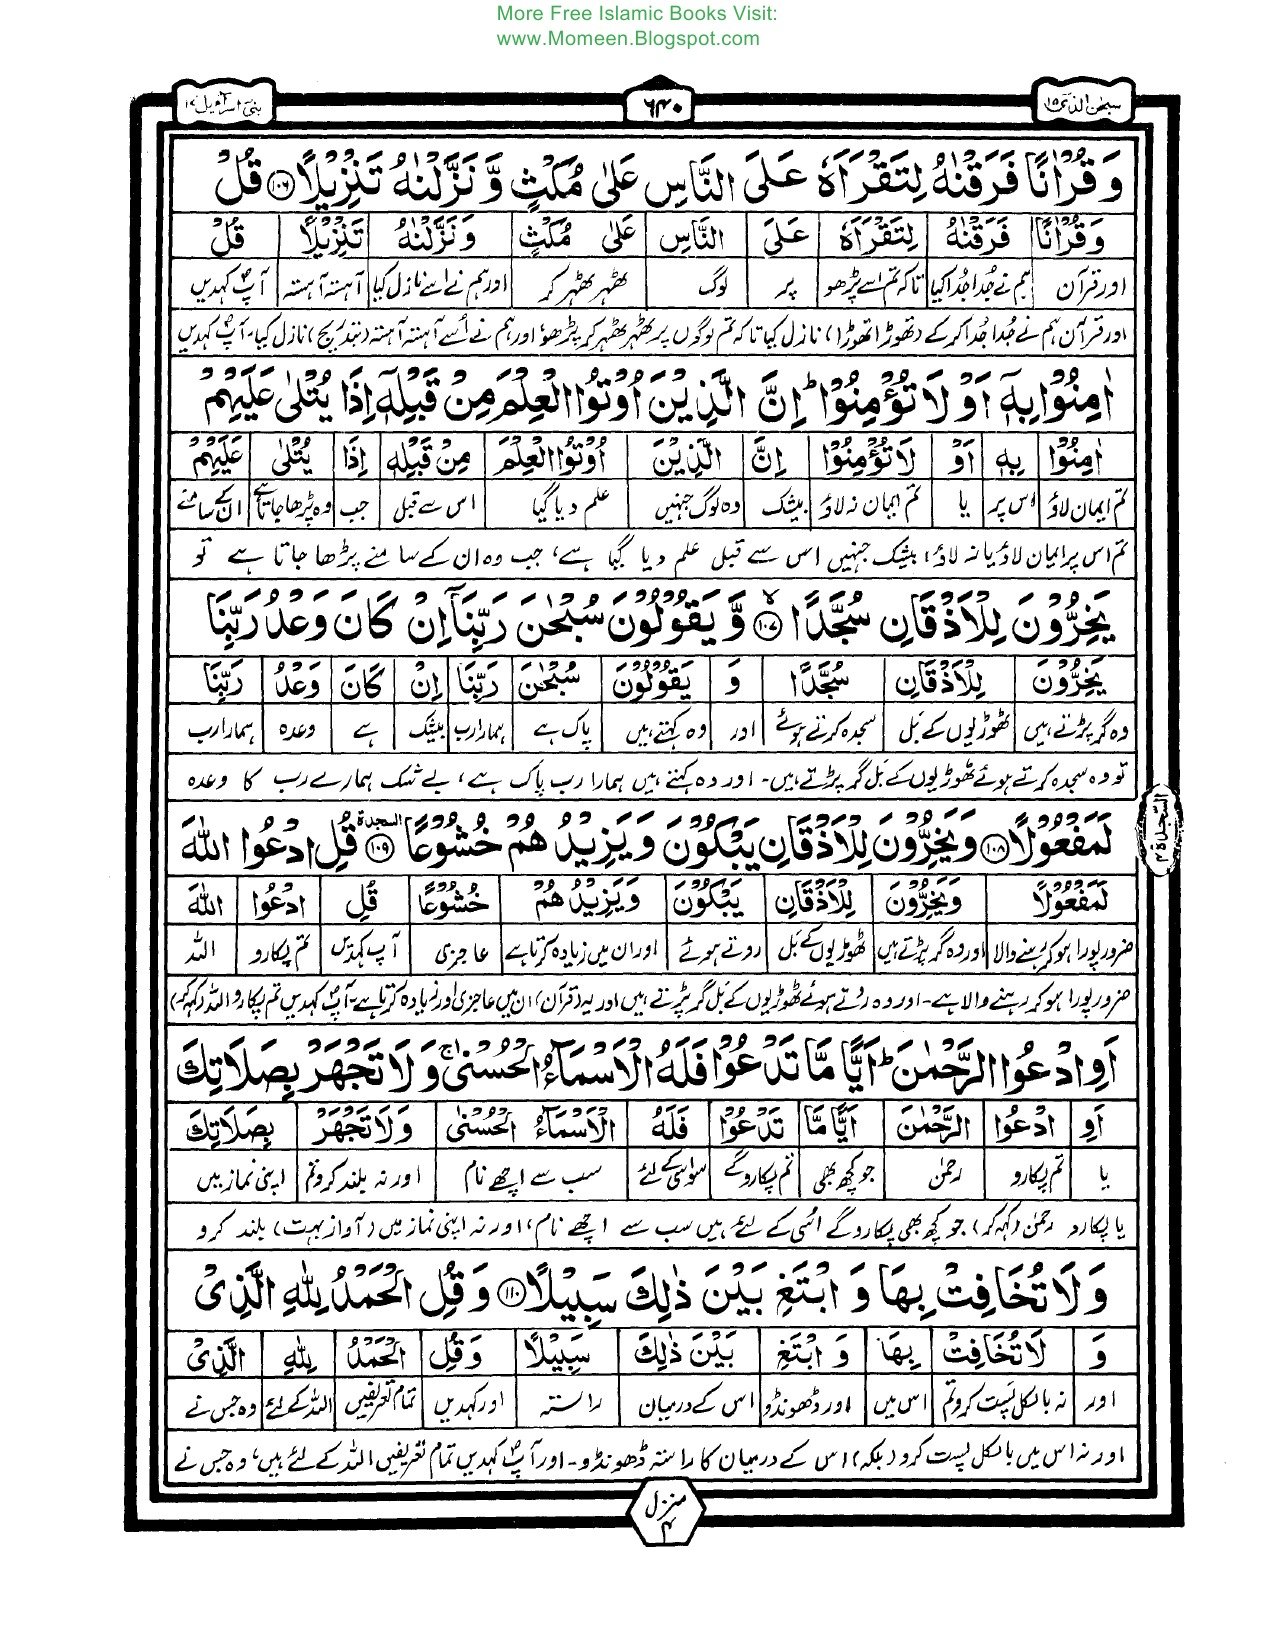 More Free Islamic Books Visit:
www.Momeen.Blogspot.com
سبحن الذی ۱۵
۶۴۰
بنی اسرآءیل ۱۷
وَ قُرْاٰنًا فَرَقْنٰهُ لِتَقْرَاَهٗ عَلَى النَّاسِ عَلٰى مُكْثٍ وَّ نَزَّلْنٰهُ تَنْزِیْلًا ﴿۱۰۶﴾ قُلْ
وَ قُرْاٰنًا فَرَقْنٰهُ لِتَقْرَاَهٗ عَلَى النَّاسِ عَلٰى مُكْثٍ وَنَزَّلْنٰهُ تَنْزِیْلًا قُلْ
اور قرآن ہم نے جُدا جُدا کیا تاکہ تم اسے پڑھو پر لوگ ٹھہر ٹھہر کر اور ہم نے اسے نازل کیا آہستہ آہستہ آپ کہدیں
اور قرآن ہم نے جُدا جُدا کر کے (تھوڑا تھوڑا) نازل کیا تاکہ تم لوگوں پر ٹھہر ٹھہر کر پڑھو، اور ہم نے اُسے آہستہ آہستہ (بتدریج) نازل کیا۔ آپ کہدیں
اٰمِنُوْا بِهٖۤ اَوْ لَا تُؤْمِنُوْا ؕ اِنَّ الَّذِیْنَ اُوْتُوا الْعِلْمَ مِنْ قَبْلِهٖۤ اِذَا یُتْلٰى عَلَیْهِمْ
اٰمِنُوْا بِهٖ اَوْ لَا تُؤْمِنُوْا اِنَّ الَّذِیْنَ اُوْتُوا الْعِلْمَ مِنْ قَبْلِهٖ اِذَا یُتْلٰى عَلَیْهِمْ
تم ایمان لاؤ اس پر یا تم ایمان نہ لاؤ بیشک وہ لوگ جنہیں علم دیا گیا اس سے قبل جب وہ پڑھا جاتا ہے ان کے سامنے
تم اس پر ایمان لاؤ یا نہ لاؤ، بیشک جنہیں اس سے قبل علم دیا گیا ہے، جب وہ ان کے سامنے پڑھا جاتا ہے تو
یَخِرُّوْنَ لِلْاَذْقَانِ سُجَّدًا ۙ﴿۱۰۷﴾ وَّ یَقُوْلُوْنَ سُبْحٰنَ رَبِّنَاۤ اِنْ كَانَ وَعْدُ رَبِّنَا
یَخِرُّوْنَ لِلْاَذْقَانِ سُجَّدًا وَ یَقُوْلُوْنَ سُبْحٰنَ رَبِّنَا اِنْ كَانَ وَعْدُ رَبِّنَا
وہ گر پڑتے ہیں ٹھوڑیوں کے بل سجدہ کرتے ہوئے اور وہ کہتے ہیں پاک ہے ہمارا رب بیشک ہے وعدہ ہمارا رب
تو وہ سجدہ کرتے ہوئے ٹھوڑیوں کے بل گر پڑتے ہیں۔ اور وہ کہتے ہیں ہمارا رب پاک ہے، بے شک ہمارے رب کا وعدہ
لَمَفْعُوْلًا ﴿۱۰۸﴾ وَیَخِرُّوْنَ لِلْاَذْقَانِ یَبْكُوْنَ وَ یَزِیْدُهُمْ خُشُوْعًا ﴿۱۰۹﴾ السجدة قُلِ ادْعُوا اللّٰهَ
السجدة ۴
لَمَفْعُوْلًا وَیَخِرُّوْنَ لِلْاَذْقَانِ یَبْكُوْنَ وَیَزِیْدُهُمْ خُشُوْعًا قُلِ ادْعُوا اللّٰهَ
ضرور پورا ہو کر رہنے والا اور وہ گر پڑتے ہیں ٹھوڑیوں کے بل روتے ہوئے اور ان میں زیادہ کرتا ہے عاجزی آپ کہدیں تم پکارو اللہ
ضرور پورا ہو کر رہنے والا ہے۔ اور وہ روتے ہوئے ٹھوڑیوں کے بل گر پڑتے ہیں اور یہ (قرآن) ان میں عاجزی اور زیادہ کرتا ہے۔ آپ کہدیں تم پکارو اللہ (کہہ کر)
اَوِ ادْعُوا الرَّحْمٰنَ ؕ اَیًّا مَّا تَدْعُوْا فَلَهُ الْاَسْمَآءُ الْحُسْنٰى ۚ وَ لَا تَجْهَرْ بِصَلَاتِكَ
اَوِ ادْعُوا الرَّحْمٰنَ اَیًّا مَّا تَدْعُوْا فَلَهُ الْاَسْمَآءُ الْحُسْنٰى وَلَا تَجْهَرْ بِصَلَاتِكَ
یا تم پکارو رحمٰن جو کچھ بھی تم پکارو گے سو اسی کے لئے سب سے اچھے نام اور نہ بلند کرو تم اپنی نماز میں
یا پکارو رحمٰن (کہہ کر) جو کچھ بھی پکارو گے اُسی کے لئے ہیں سب سے اچھے نام، اور نہ اپنی نماز میں (آواز بہت) بلند کرو
وَ لَا تُخَافِتْ بِهَا وَ ابْتَغِ بَیْنَ ذٰلِكَ سَبِیْلًا ﴿۱۱۰﴾ وَ قُلِ الْحَمْدُ لِلّٰهِ الَّذِیْ
وَ لَا تُخَافِتْ بِهَا وَ ابْتَغِ بَیْنَ ذٰلِكَ سَبِیْلًا وَ قُلِ الْحَمْدُ لِلّٰهِ الَّذِیْ
اور نہ بالکل پست کرو تم اس میں اور ڈھونڈو اس کے درمیان راستہ اور کہدیں تمام تعریفیں اللہ کے لئے وہ جس نے
اور نہ اس میں بالکل پست کرو (بلکہ) اس کے درمیان کا راستہ ڈھونڈو۔ اور آپ کہدیں تمام تعریفیں اللہ کے لئے ہیں، وہ جس نے
منزل ۴